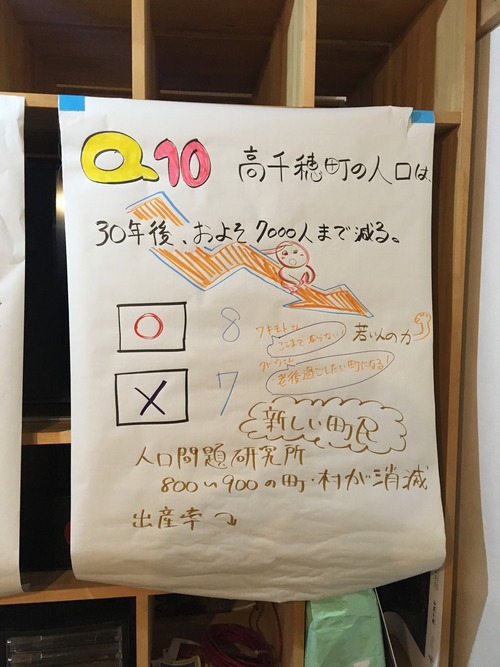 Q10 高千穂町の人口は、
30年後、およそ7000人まで減る。
○ 8
ここまで減らない! 若い人の力
× 7
老後過ごしたい町になる!
新しい町民
人口問題研究所
800〜900の町・村が消滅
出産率